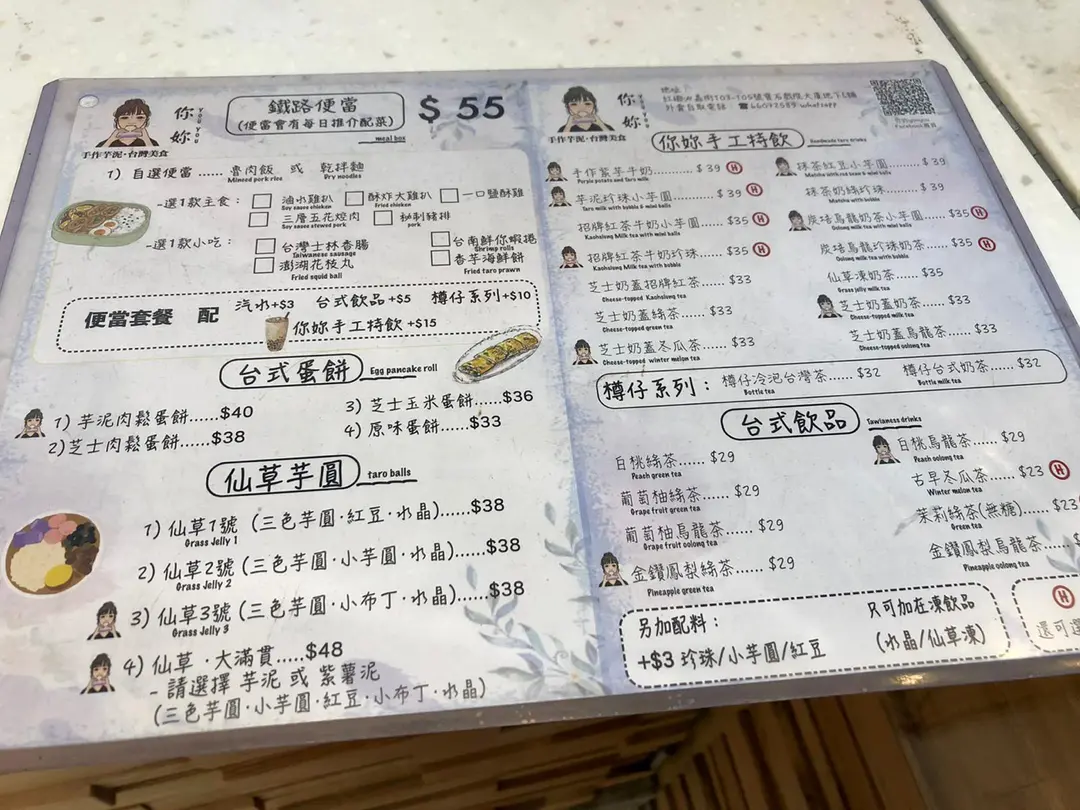 你妳
YOU YOU
手作芋泥·台灣美食
鐵路便當
(便當會有每日推介配菜)
meal box
$ 55
1) 自選便當 ...... 魯肉飯 或 乾拌麵
Minced pork rice Dry noodles
-選1款主食: 滷水雞扒 酥炸大雞扒 一口鹽酥雞
Soy sauce chicken Fried chicken
三層五花焢肉 秘制豬排
Soy sauce stewed pork pork
-選1款小吃: 台灣士林香腸 台南鮮你蝦捲
Taiwanese sausage Shrimp rolls
澎湖花枝丸 香芋海鮮餅
Fried squid ball Fried taro prawn
便當套餐 配 汽水+$3 台式飲品+$5 樽仔系列+$10
你妳手工特飲 +$15
台式蛋餅 Egg pancake roll
1) 芋泥肉鬆蛋餅......$40
2)芝士肉鬆蛋餅......$38
3) 芝士玉米蛋餅......$36
4) 原味蛋餅......$33
仙草芋圓 taro balls
1) 仙草1號 (三色芋圓·紅豆·水晶)......$38
Grass Jelly 1
2) 仙草2號 (三色芋圓·小芋圓·水晶)......$38
Grass Jelly 2
3) 仙草3號 (三色芋圓·小布丁·水晶)......$38
Grass Jelly 3
4) 仙草·大滿貫.....$48
- 請選擇 芋泥 或 紫薯泥
(三色芋圓·小芋圓·紅豆·小布丁·水晶)
你妳
YOU YOU
手作芋泥·台灣美食
地址:
外賣自取電話 whatsapp
你妳手工特飲
Handmade taro drinks
手作紫芋牛奶......$ 39 H
Purple potato and Taro milk
芋泥珍珠小芋圓......$ 39 H
Taro milk with bubble & mini balls
招牌紅茶牛奶小芋圓......$35 H
Kaohsiung Milk tea with mini balls
招牌紅茶牛奶珍珠......$35 H
Kaohsiung Milk tea with bubble
芝士奶蓋招牌紅茶......$33
Cheese-topped Kaohsiung tea
芝士奶蓋綠茶......$33
Cheese-topped green tea
芝士奶蓋冬瓜茶......$33
Cheese-topped winter melon tea
抹茶紅豆小芋圓......$ 39
Matcha with red bean & mini balls
抹茶奶綠珍珠......$ 39
Matcha with bubble
炭焙烏龍奶茶小芋圓......$35 H
Oolong milk tea with mini balls
炭焙烏龍珍珠奶茶......$35 H
Oolong milk tea with bubble
仙草凍奶茶......$35
Grass jelly milk tea
芝士奶蓋奶茶......$33
Cheese-topped milk tea
芝士奶蓋烏龍茶......$33
Cheese-topped oolong tea
樽仔系列: 樽仔冷泡台灣茶...... $32 樽仔台式奶茶...... $32
Bottle tea Bottle milk tea
台式飲品 Taiwianess drinks
白桃綠茶...... $29
Peach green tea
葡萄柚綠茶...... $29
Grape fruit green tea
葡萄柚烏龍茶......$29
Grape fruit oolong tea
金鑽鳳梨綠茶......$29
Pineapple green tea
白桃烏龍茶......$29
Peach oolong tea
古早冬瓜茶......$23 H
Winter melon tea
茉莉綠茶(無糖)......$23
Green tea
金鑽鳳梨烏龍茶......$
Pineapple oolong tea
另加配料: 只可加在凍飲品
+$3 珍珠/小芋圓/紅豆 (水晶/仙草凍)
H
還可選